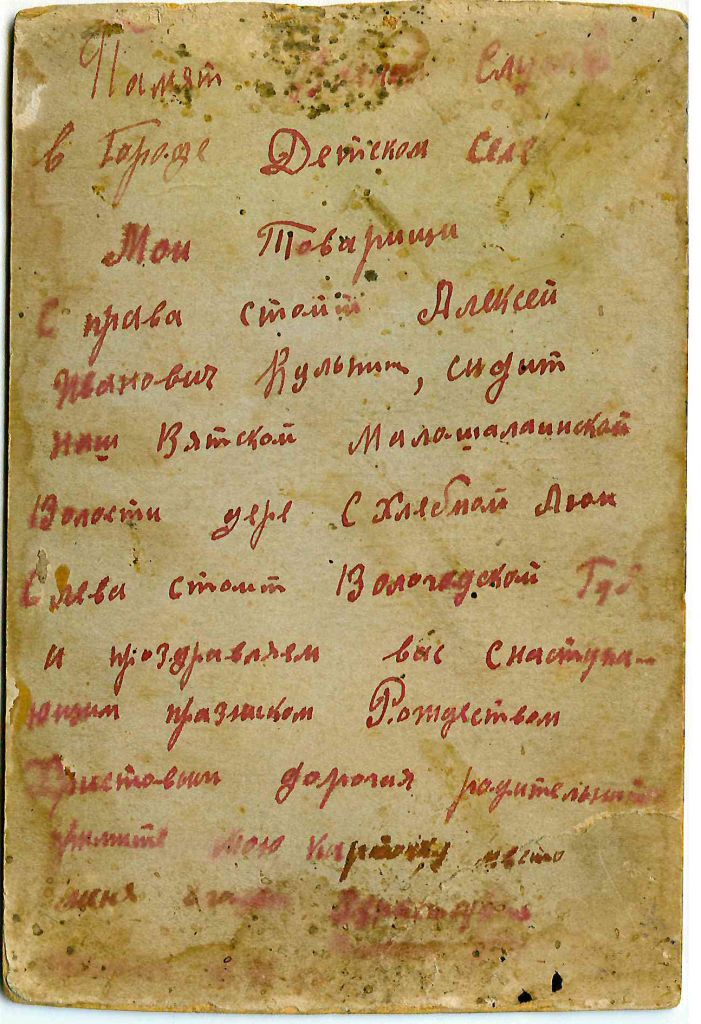 Памят
в Городе Детском Селе
Мои Товарищи
С права стоит Алексей
Иванович Кульпин, сидит
наш Вятской Малошалаинской
Волости дере С Хлебной Люи
С лева стоит Вологодской Губ
и проздравляем вас снаступа-
ющим празником Рождеством
Христовым дорогая родительни
примите мою карточку место
меня